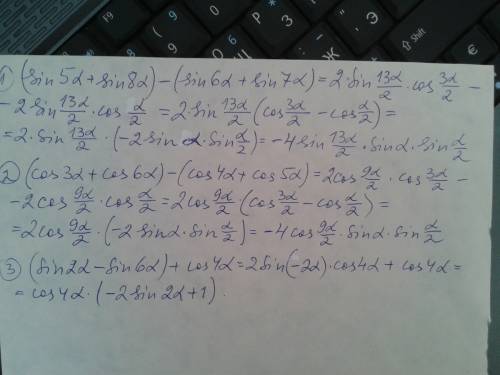 ① (sin5α+sin8α)−(sin6α+sin7α)=2·sin 13α/2·cos 3α/2 −
− 2sin 13α/2·cos α/2 = 2·sin 13α/2 (cos 3α/2 − cos α/2)=
=2·sin 13α/2·(−2sin α·sin α/2)=−4sin 13α/2·sinα·sin α/2
② (cos3α+cos6α)−(cos4α+cos5α)=2cos 9α/2·cos 3α/2 −
−2cos 9α/2·cos α/2=2cos 9α/2 (cos 3α/2 − cos α/2)=
=2cos 9α/2·(−2sinα·sin α/2)=−4cos 9α/2·sinα·sin α/2
③ (sin2α−sin6α)+cos4α=2sin(−2α)·cos4α+cos4α=
=cos4α·(−2sin2α+1).